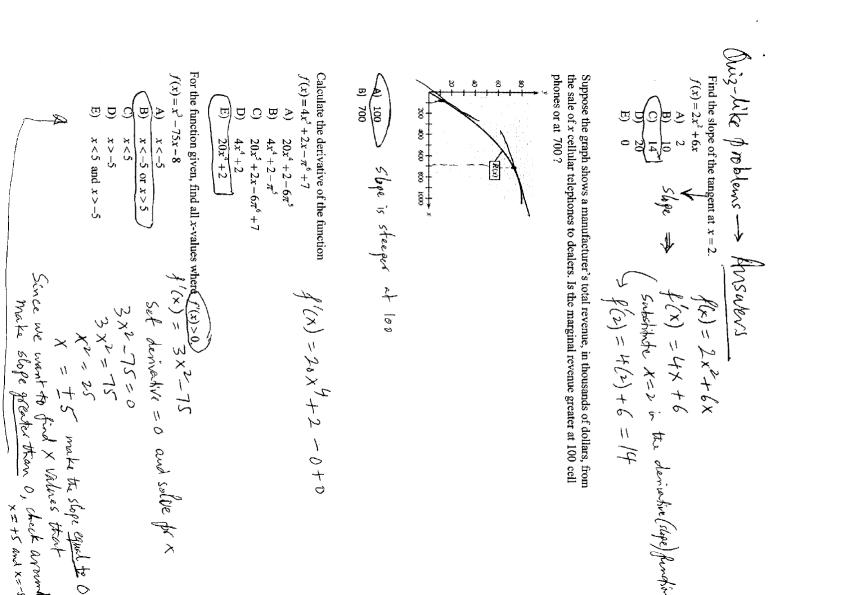 Quiz-like problems → Answers
Find the slope of the tangent at x = 2.
f(x) = 2x² + 6x
A) 2
B) 10
C) 14
D) 20
E) 0
slope ⇒
f(x) = 2x² + 6x
f'(x) = 4x + 6
substitute x=2 in the derivative (slope) function
f'(2) = 4(2) + 6 = 14
Suppose the graph shows a manufacturer's total revenue, in thousands of dollars, from
the sale of x cellular telephones to dealers. Is the marginal revenue greater at 100 cell
phones or at 700 ?
y
80
60
40
20
R(x)
200 400 600 800 1000 x
A) 100
B) 700
slope is steeper at 100
Calculate the derivative of the function
f(x) = 4x⁵ + 2x − π⁶ + 7
A) 20x⁴ + 2 − 6π⁵
B) 4x⁴ + 2 − π⁵
C) 20x⁵ + 2x − 6π⁶ + 7
D) 4x⁴ + 2
E) 20x⁴ + 2
f'(x) = 20x⁴ + 2 − 0 + 0
For the function given, find all x-values where f'(x) > 0.
f(x) = x³ − 75x − 8
A) x < −5
B) x < −5 or x > 5
C) x < 5
D) x > −5
E) x < 5 and x > −5
f'(x) = 3x² − 75
Set derivative = 0 and solve for x
3x² − 75 = 0
3x² = 75
x² = 25
x = ±5 make the slope equal to 0
Since we want to find x values that
make slope greater than 0, check around
x = +5 and x = -5